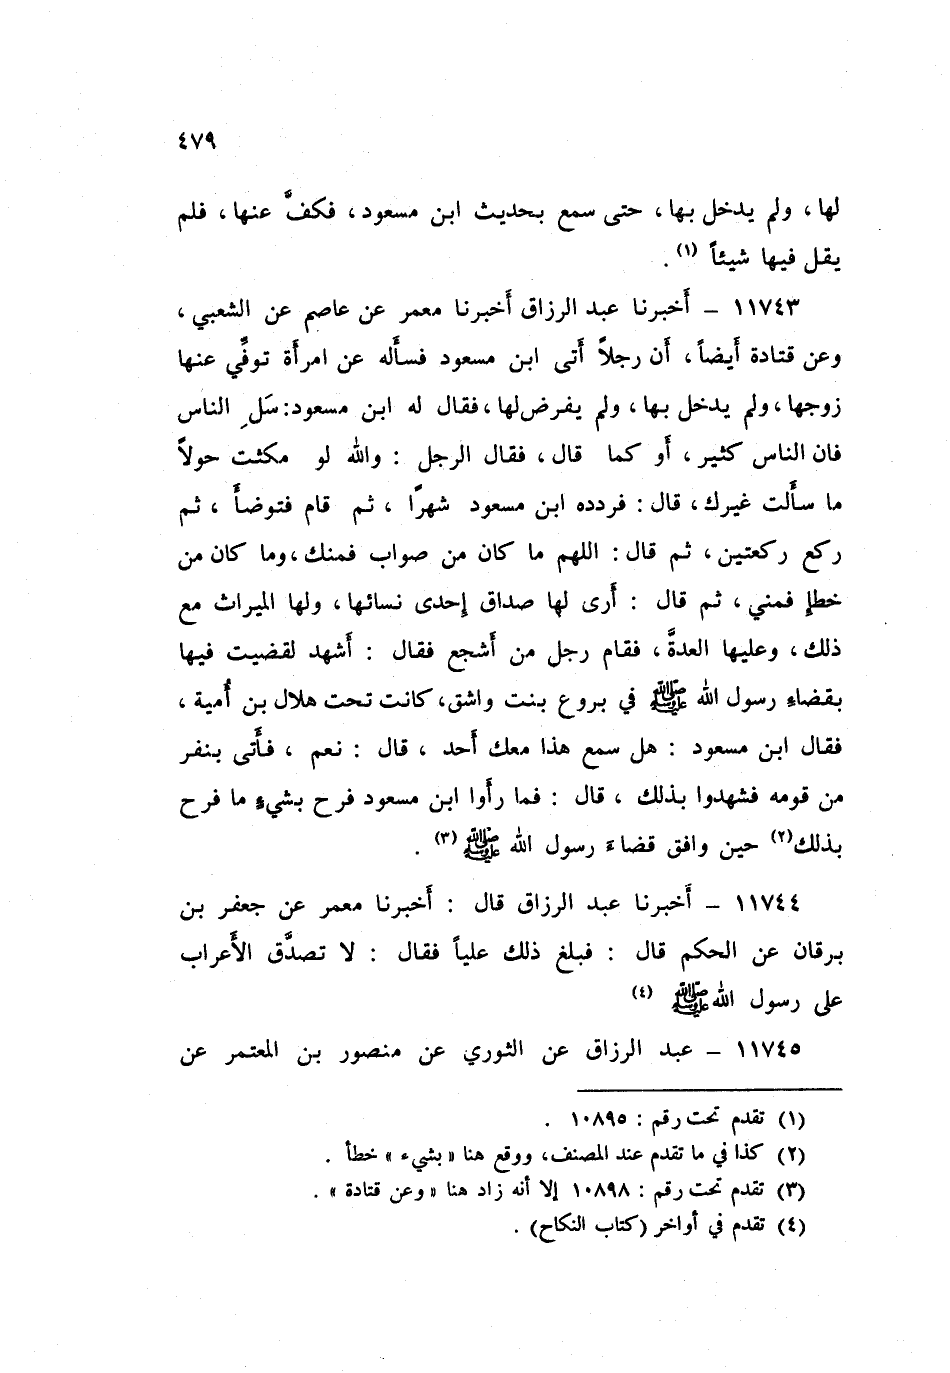 ٤٧٩
لها، ولم يدخل بها، حتى سمع بحديث ابن مسعود، فكفَّ عنها، فلم
يقل فيها شيئاً (١) .
١١٧٤٣ – أَخبرنا عبد الرزاق أَخبرنا معمر عن عاصم عن الشعبي ،
وعن قتادة أَيضاً، أَن رجلاً أَتى ابن مسعود فسأَله عن امرأَة توفِّي عنها
زوجها، ولم يدخل بها، ولم يفرض لها، فقال له ابن مسعود: سَلِ الناس
فان الناس كثير، أَو كما قال، فقال الرجل : والله لو مكثت حولاً
ما سأَلت غيرك، قال : فردده ابن مسعود شهرًا ، ثم قام فتوضأَ ، ثم
ركع ركعتين، ثم قال : اللهم ما كان من صواب فمنك، وما كان من
خطإ فمني، ثم قال : أَرى لها صداق إحدى نسائها، ولها الميراث مع
ذلك، وعليها العدةَّ، فقام رجل من أَشجع فقال : أَشهد لقضيت فيها
بقضاءِ رسول الله ﷺ في بروع بنت واشق، كانت تحت هلال بن أُمية ،
فقال ابن مسعود : هل سمع هذا معك أَحد ، قال : نعم ، فأَتى بنفر
من قومه فشهدوا بذلك ، قال : فما رأَوا ابن مسعود فرح بشيءٍ ما فرح
بذلك(٢) حين وافق قضاءَ رسول الله ﷺ (٣) .
١١٧٤٤ – أَخبرنا عبد الرزاق قال : أَخبرنا معمر عن جعفر بن
برقان عن الحكم قال : فبلغ ذلك علياً فقال : لا تصدَّق الأَعراب
على رسول الله ﷺ (٤)
١١٧٤٥ – عبد الرزاق عن الثوري عن منصور بن المعتمر عن
(١) تقدم تحت رقم : ١٠٨٩٥ .
(٢) كذا في ما تقدم عند المصنف، ووقع هنا «بشيء» خطأ .
(٣) تقدم تحت رقم : ١٠٨٩٨ إلا أنه زاد هنا «وعن قتادة» .
(٤) تقدم في أواخر (كتاب النكاح) .